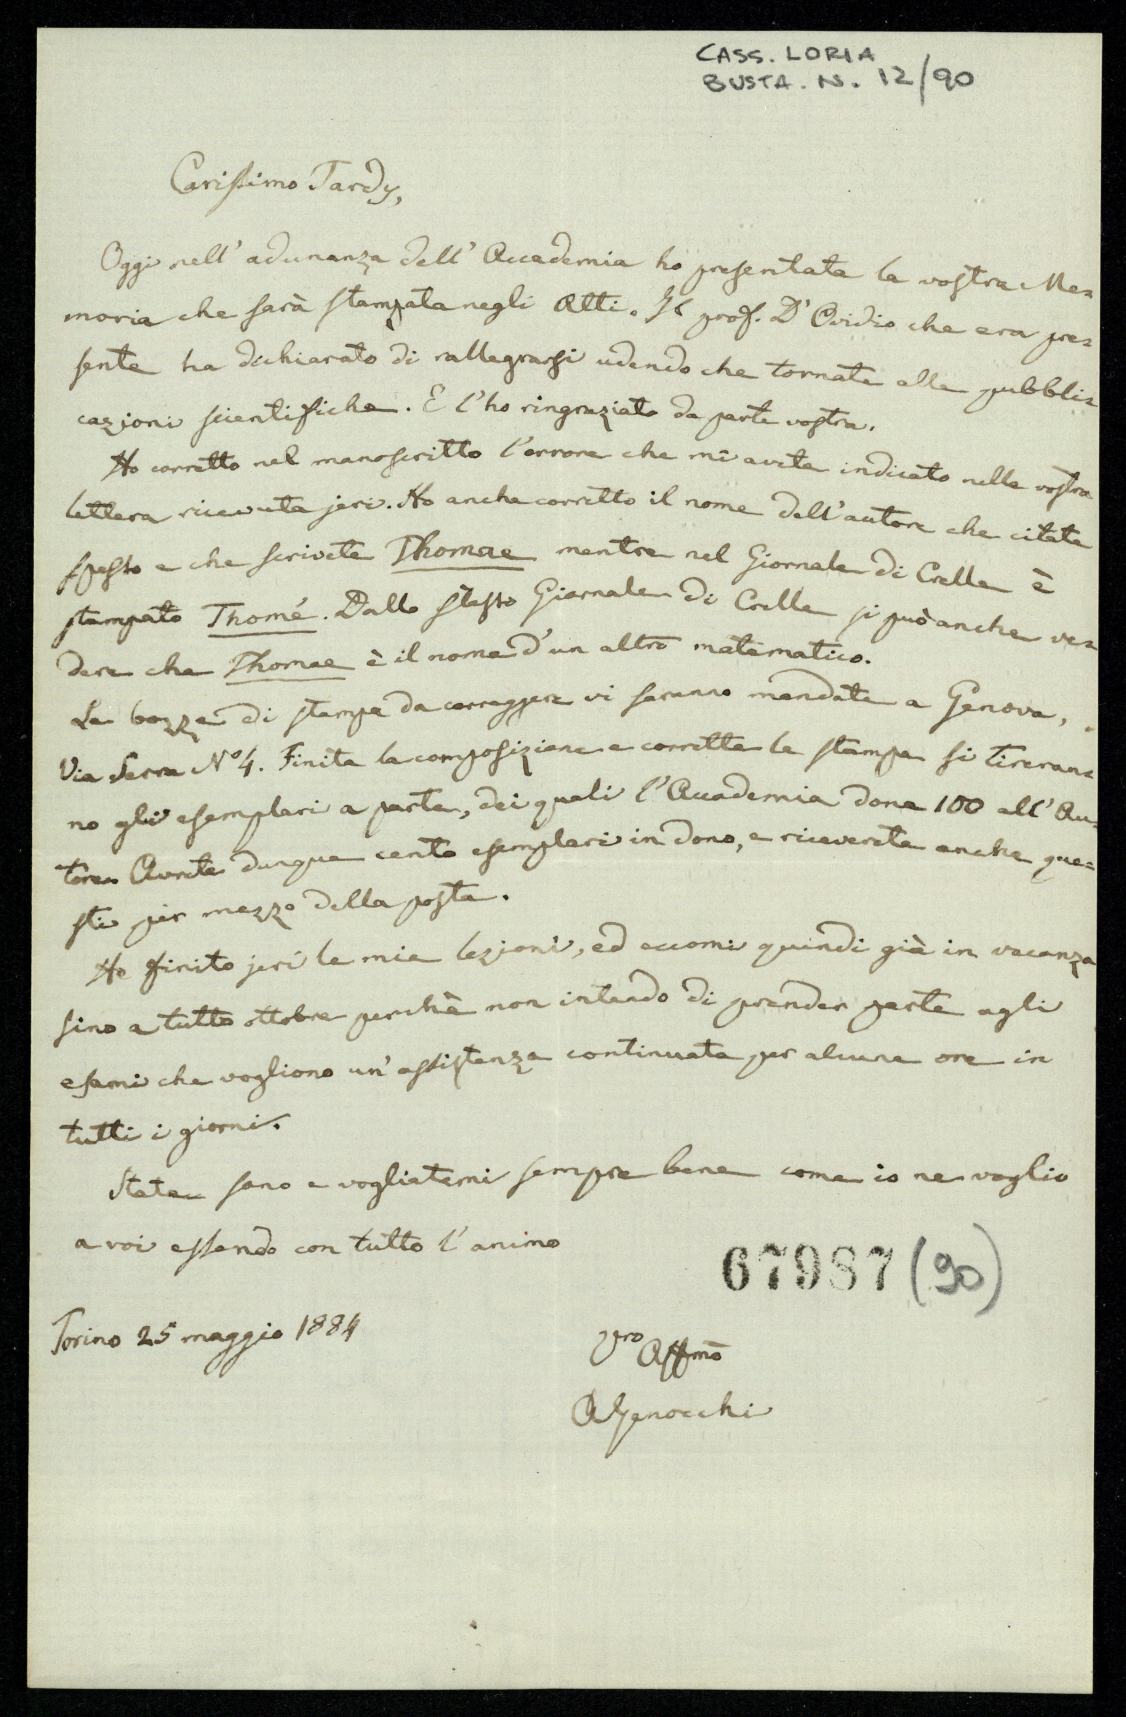 CASS. LORIA
BUSTA. N. 12/90
Carissimo Tardy,
Oggi nell'adunanza dell'Accademia ho presentata la vostra Me=
moria che sarà stampata negli Atti. Il prof. D'Ovidio che era pre=
sente ha dichiarato di rallegrarsi udendo che tornate alle pubbli=
cazioni scientifiche. E l'ho ringraziato da parte vostra.
Ho corretto nel manoscritto l'errore che mi avete indicato nella vostra
lettera ricevuta jeri. Ho anche corretto il nome dell'autore che citate
spesso e che scrivete Thomae mentre nel Giornale di Crelle è
stampato Thomé. Dallo stesso Giornale di Crelle si può anche ve=
dere che Thomae è il nome d'un altro matematico.
Le bozze di stampa da correggere vi saranno mandate a Genova,
Via Serra No 4. Finita la composizione e corrette le stampe si tireran=
no gli esemplari a parte, dei quali l'Accademia dona 100 all'Au=
tore. Avrete dunque cento esemplari in dono, e riceverete anche que=
sti per mezzo della posta.
Ho finito jeri le mie lezioni, ed eccomi quindi già in vacanza
sino a tutto ottobre perchè non intendo di prender parte agli
esami che vogliono un'assistenza continuata per alcune ore in
tutti i giorni.
State sano e vogliatemi sempre bene come io ne voglio
a voi essendo con tutto l'animo
67987 (90)
Torino 25 maggio 1884
Vro Affmo
AGenocchi